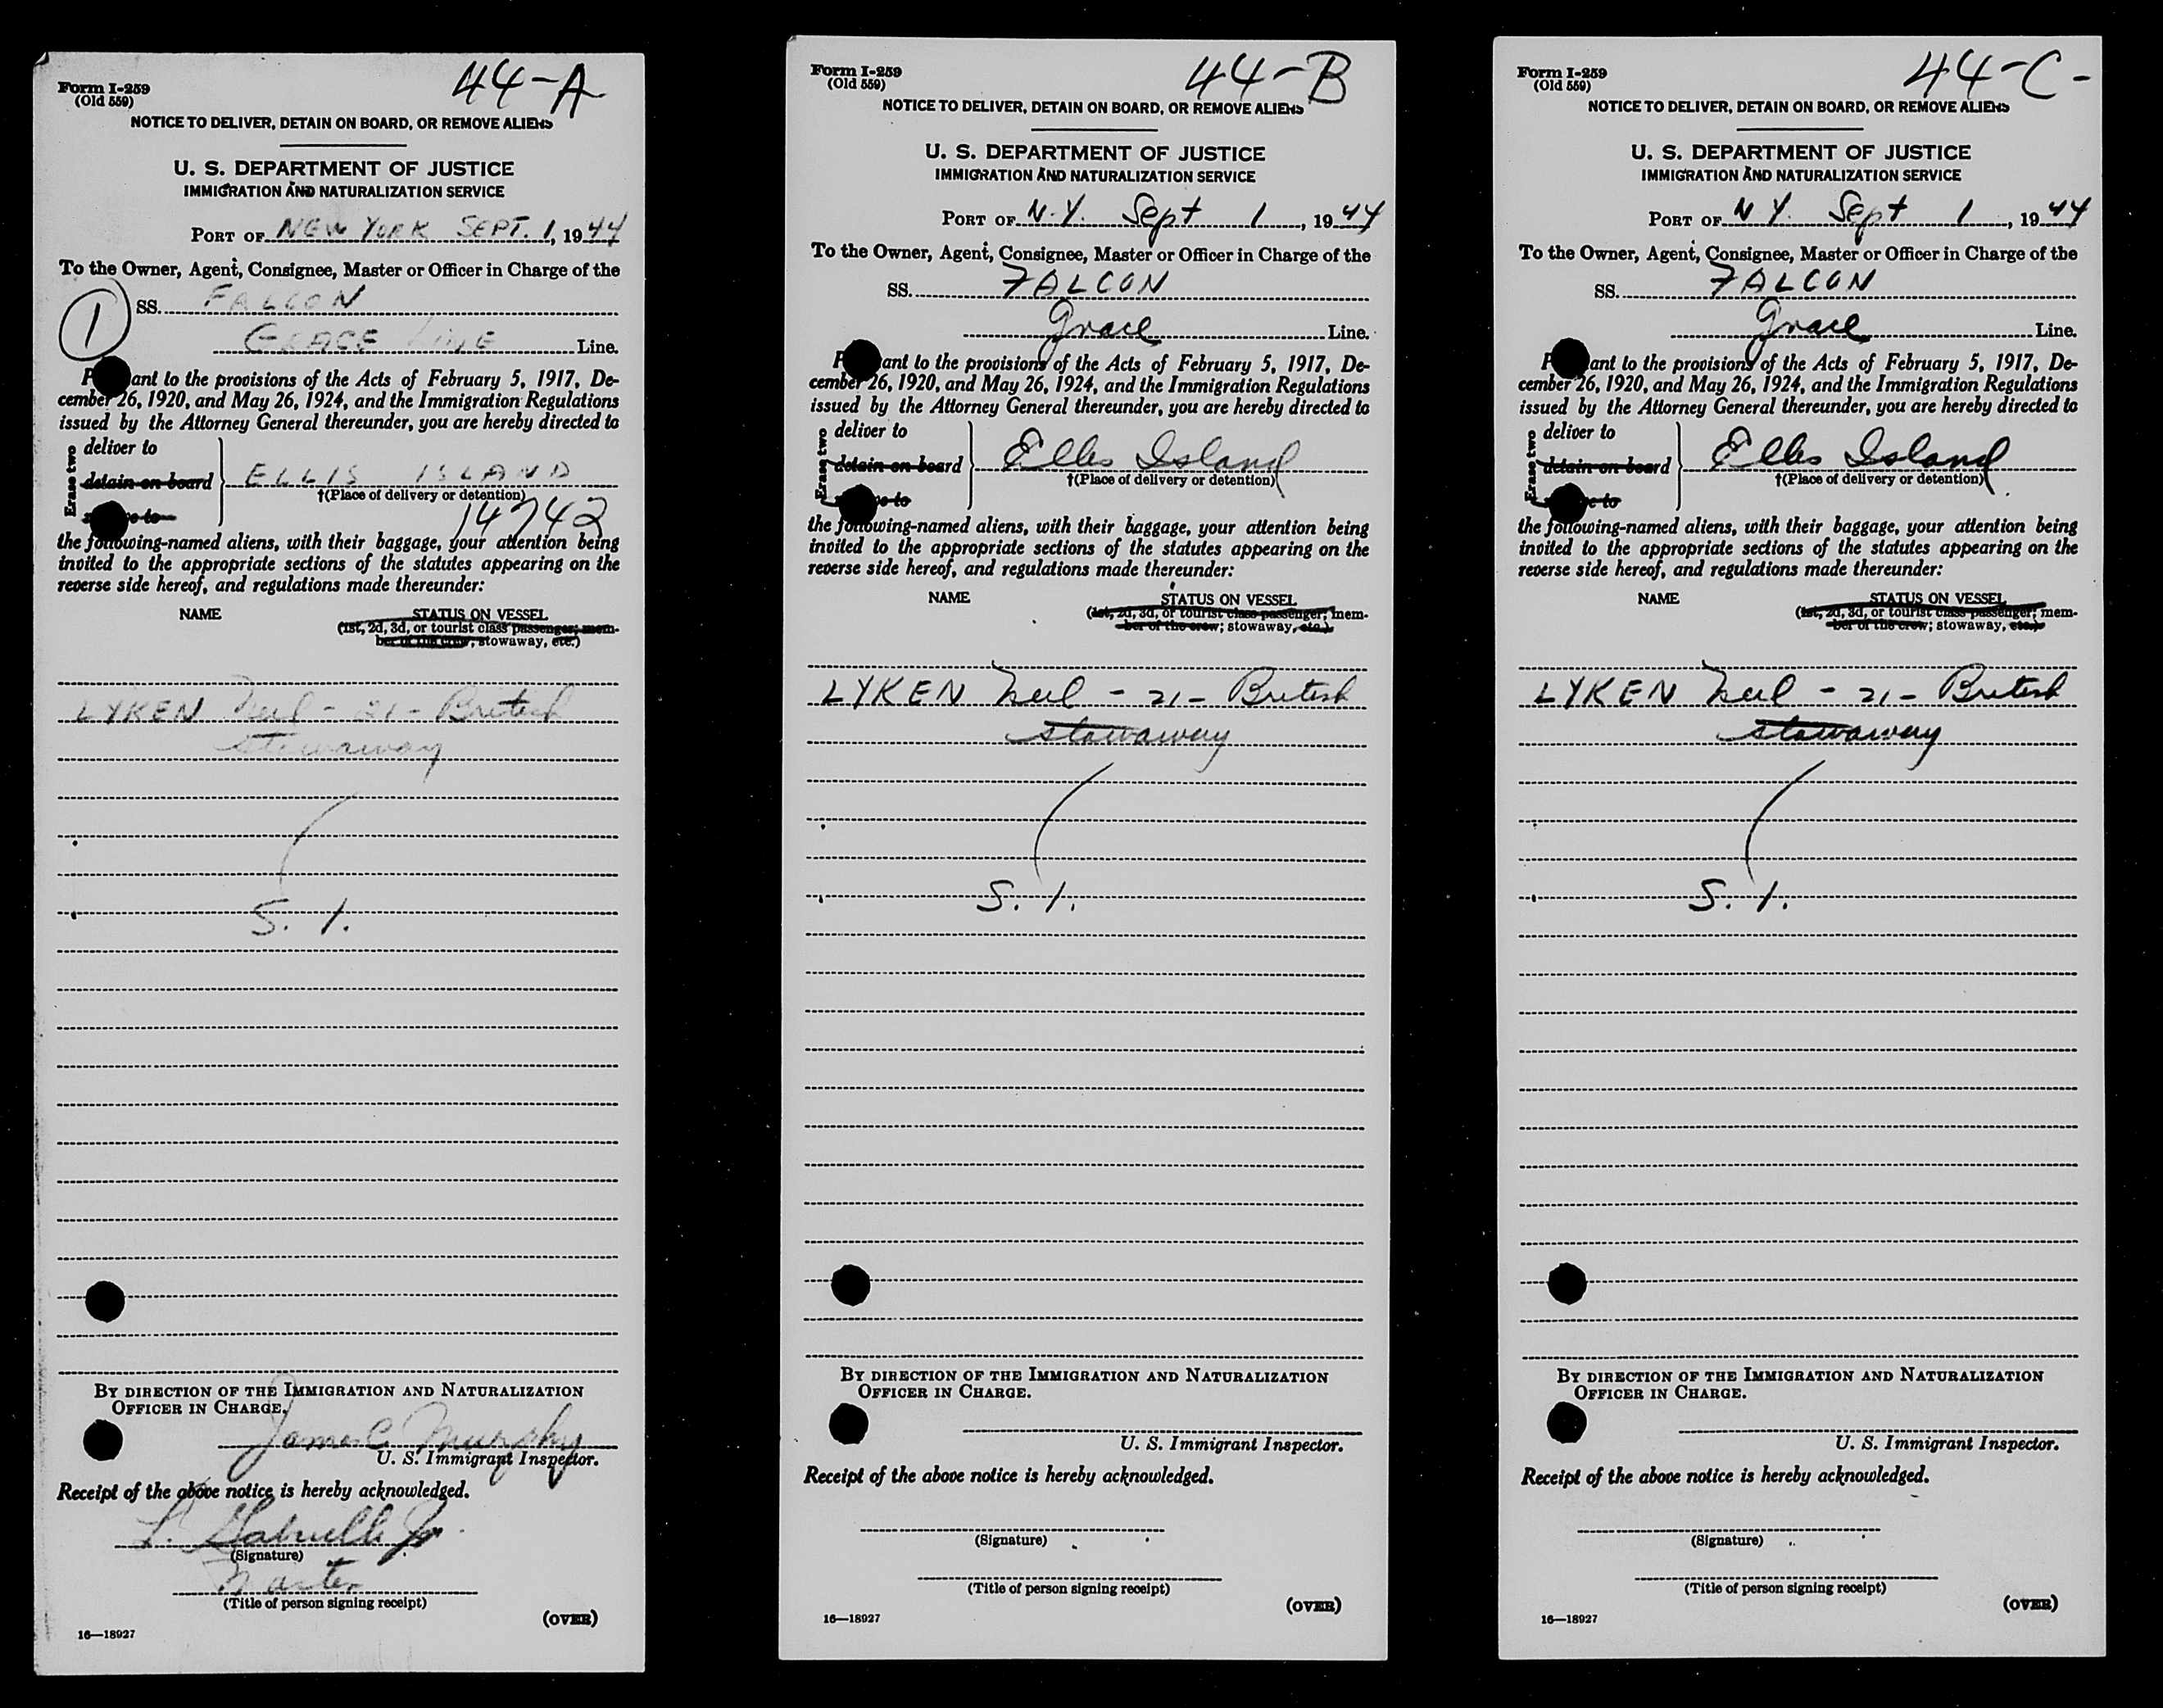 44-A
Form I-259
(Old 559)
NOTICE TO DELIVER, DETAIN ON BOARD, OR REMOVE ALIENS
U. S. DEPARTMENT OF JUSTICE
IMMIGRATION AND NATURALIZATION SERVICE
PORT OF NEW YORK SEPT. 1, 1944
To the Owner, Agent, Consignee, Master or Officer in Charge of the
SS. FALCON
1
GRACE LINE Line.
P ant to the provisions of the Acts of February 5, 1917, De-
cember 26, 1920, and May 26, 1924, and the Immigration Regulations
issued by the Attorney General thereunder, you are hereby directed to
Erase two
deliver to
detain on board ELLIS ISLAND
†(Place of delivery or detention)
14742
the following-named aliens, with their baggage, your attention being
invited to the appropriate sections of the statutes appearing on the
reverse side hereof, and regulations made thereunder:
NAME STATUS ON VESSEL
(1st, 2d, 3d, or tourist class passenger; mem-
ber of the crew; stowaway, etc.)
LYKEN Neil - 21 - British
stowaway
S. I.
BY DIRECTION OF THE IMMIGRATION AND NATURALIZATION
OFFICER IN CHARGE.
James C Murphy
U. S. Immigrant Inspector.
Receipt of the above notice is hereby acknowledged.
L. Gabrielle Jr.
(Signature)
Master
(Title of person signing receipt)
(OVER)
16—18927
44-B
Form I-259
(Old 559)
NOTICE TO DELIVER, DETAIN ON BOARD, OR REMOVE ALIENS
U. S. DEPARTMENT OF JUSTICE
IMMIGRATION AND NATURALIZATION SERVICE
PORT OF N.Y. Sept 1, 1944
To the Owner, Agent, Consignee, Master or Officer in Charge of the
SS. FALCON
Grace Line.
P ant to the provisions of the Acts of February 5, 1917, De-
cember 26, 1920, and May 26, 1924, and the Immigration Regulations
issued by the Attorney General thereunder, you are hereby directed to
Erase two
deliver to
detain on board Ellis Island
†(Place of delivery or detention)
the following-named aliens, with their baggage, your attention being
invited to the appropriate sections of the statutes appearing on the
reverse side hereof, and regulations made thereunder:
NAME STATUS ON VESSEL
(1st, 2d, 3d, or tourist class passenger; mem-
ber of the crew; stowaway, etc.)
LYKEN Neil - 21 - British
stowaway
S. I.
BY DIRECTION OF THE IMMIGRATION AND NATURALIZATION
OFFICER IN CHARGE.
U. S. Immigrant Inspector.
Receipt of the above notice is hereby acknowledged.
(Signature)
(Title of person signing receipt)
(OVER)
16—18927
44-C-
Form I-259
(Old 559)
NOTICE TO DELIVER, DETAIN ON BOARD, OR REMOVE ALIENS
U. S. DEPARTMENT OF JUSTICE
IMMIGRATION AND NATURALIZATION SERVICE
PORT OF N Y. Sept 1, 1944
To the Owner, Agent, Consignee, Master or Officer in Charge of the
SS. FALCON
Grace Line.
P ant to the provisions of the Acts of February 5, 1917, De-
cember 26, 1920, and May 26, 1924, and the Immigration Regulations
issued by the Attorney General thereunder, you are hereby directed to
Erase two
deliver to
detain on board Ellis Island
†(Place of delivery or detention)
the following-named aliens, with their baggage, your attention being
invited to the appropriate sections of the statutes appearing on the
reverse side hereof, and regulations made thereunder:
NAME STATUS ON VESSEL
(1st, 2d, 3d, or tourist class passenger; mem-
ber of the crew; stowaway, etc.)
LYKEN Neil - 21 - British
stowaway
S. I.
BY DIRECTION OF THE IMMIGRATION AND NATURALIZATION
OFFICER IN CHARGE.
U. S. Immigrant Inspector.
Receipt of the above notice is hereby acknowledged.
(Signature)
(Title of person signing receipt)
(OVER)
16—18927